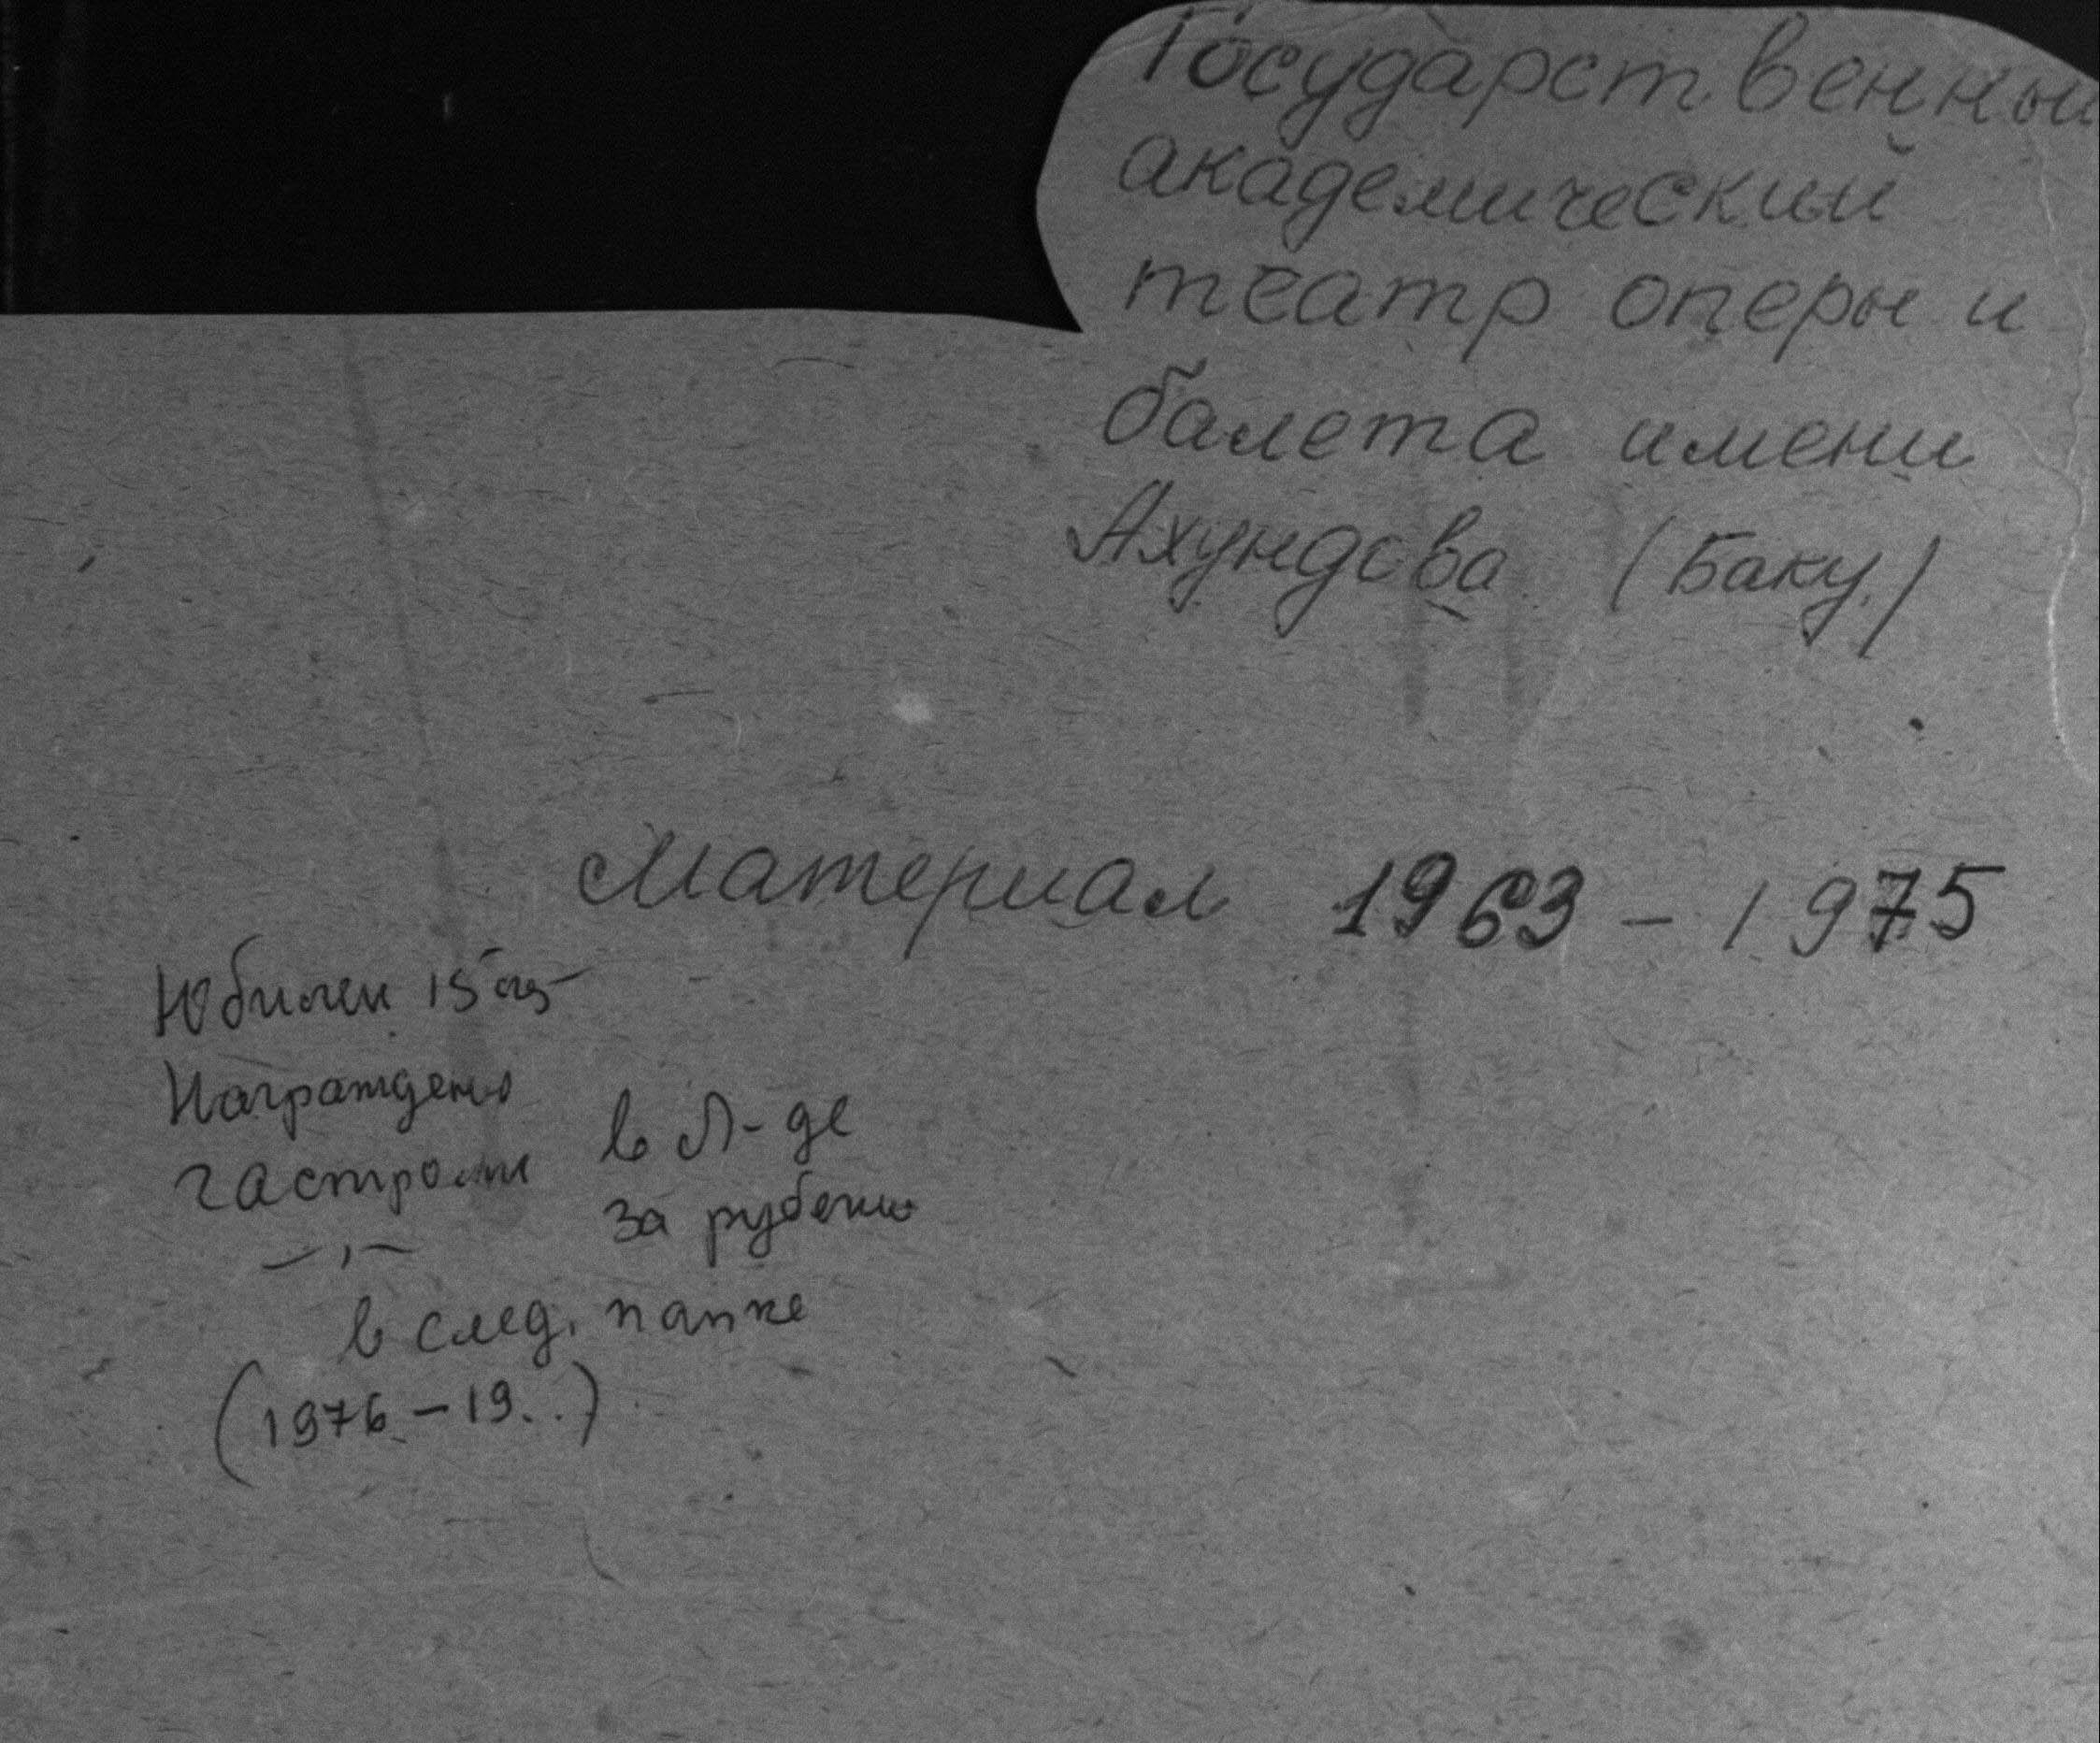 Государственный
академический
театр оперы и
балета имени
Ахундова (Баку)
Материал 1963 – 1975
Юбилеи 15
Награждены
гастроли в Л-де
–"– за рубежом
в след. папке
(1976 – 19..)